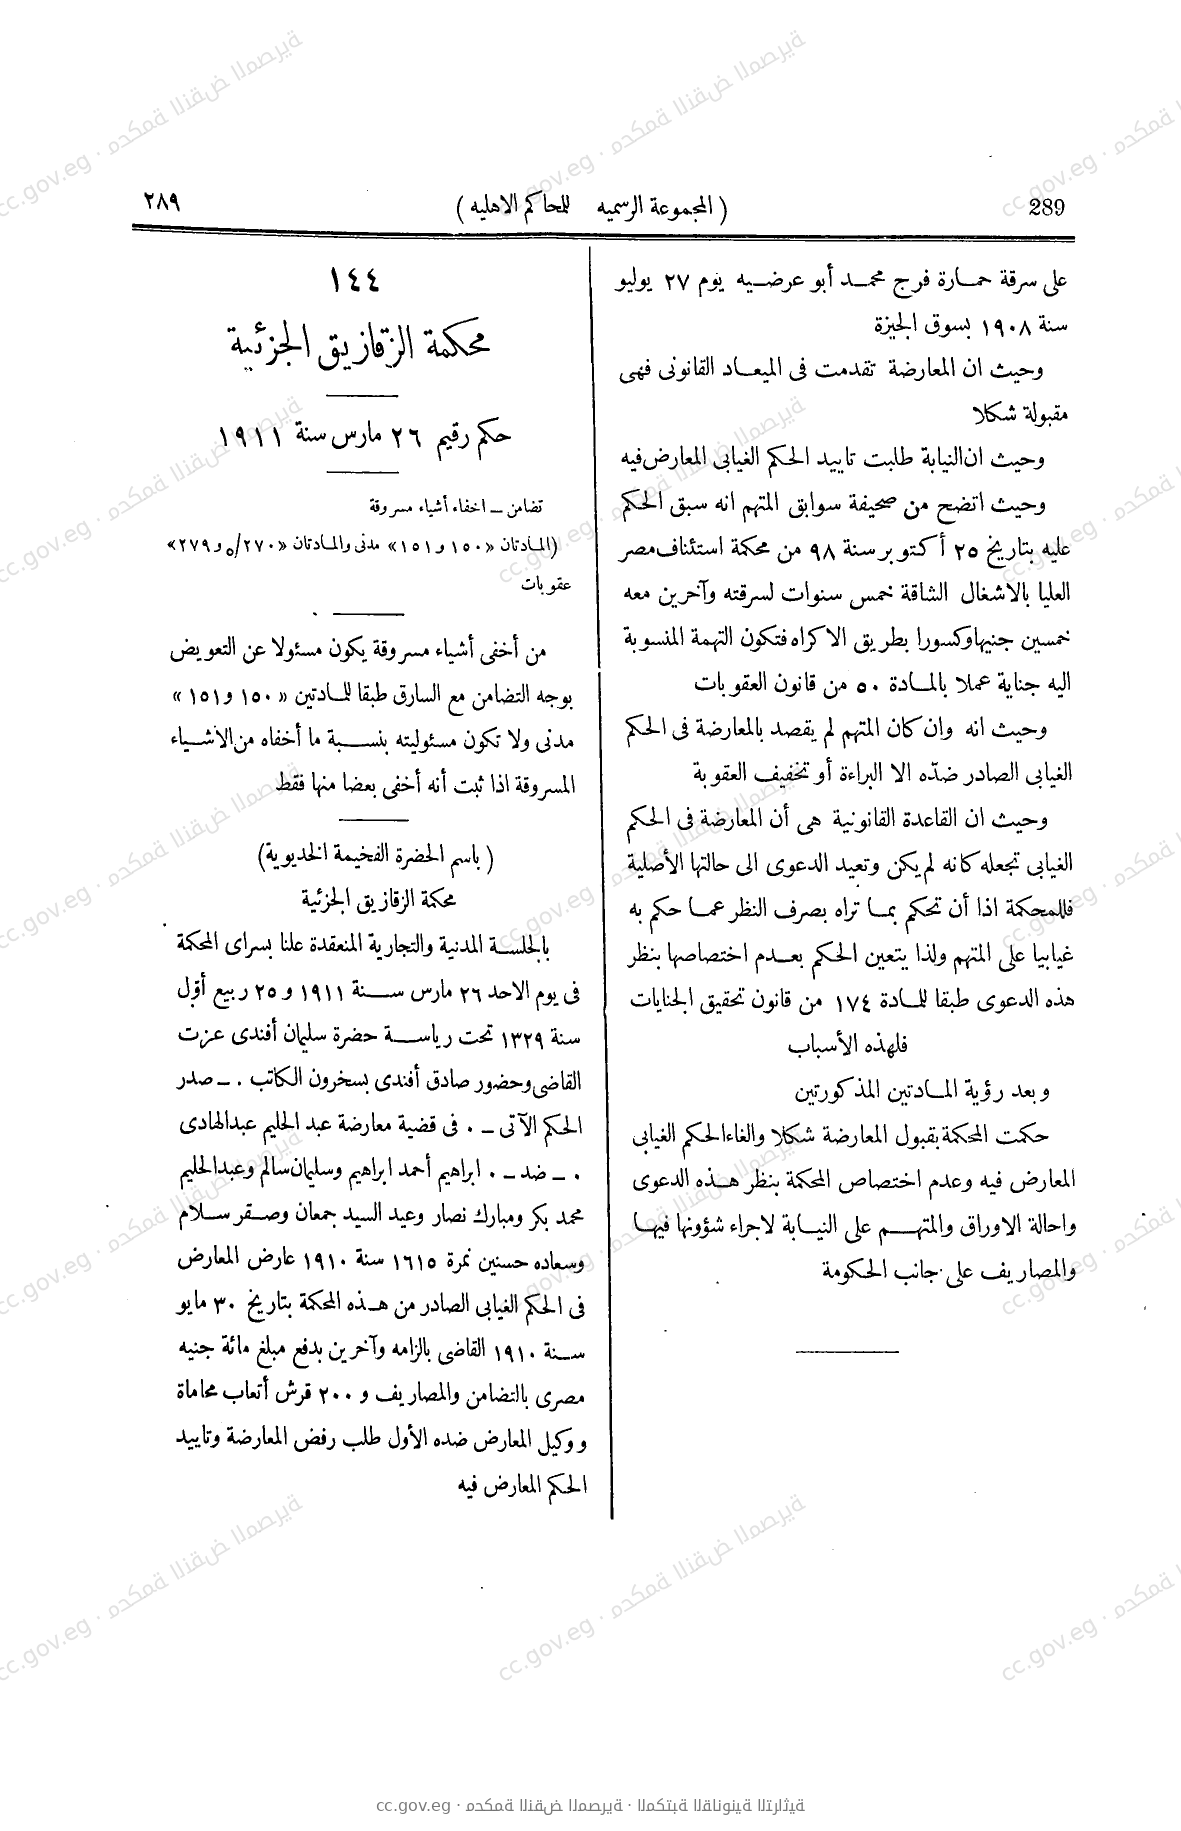 289 ( المجموعة الرسميه للمحاكم الاهليه ) ٢٨٩
على سرقة حمارة فرج محمد أبو عرضيه يوم ٢٧ يوليو
سنة ١٩٠٨ بسوق الجيزة
وحيث ان المعارضة تقدمت فى الميعاد القانونى فهى
مقبولة شكلا
وحيث ان النيابة طلبت تاييد الحكم الغيابى المعارض فيه
وحيث اتضح من صحيفة سوابق المتهم انه سبق الحكم
عليه بتاريخ ٢٥ أكتوبر سنة ٩٨ من محكمة استئناف مصر
العليا بالاشغال الشاقة خمس سنوات لسرقته وآخرين معه
خمسين جنيها وكسورا بطريق الاكراه فتكون التهمة المنسوبة
اليه جناية عملا بالمادة ٥٠ من قانون العقوبات
وحيث انه وان كان المتهم لم يقصد بالمعارضة فى الحكم
الغيابى الصادر ضدّه الا البراءة أو تخفيف العقوبة
وحيث ان القاعدة القانونية هى أن المعارضة فى الحكم
الغيابى تجعله كانه لم يكن وتعيد الدعوى الى حالتها الأصلية
فللمحكمة اذا أن تحكم بما تراه بصرف النظر عما حكم به
غيابيا على المتهم ولذا يتعين الحكم بعدم اختصاصها بنظر
هذه الدعوى طبقا للمادة ١٧٤ من قانون تحقيق الجنايات
فلهذه الأسباب
وبعد رؤية المادتين المذكورتين
حكمت المحكمة بقبول المعارضة شكلا والغاء الحكم الغيابى
المعارض فيه وعدم اختصاص المحكمة بنظر هذه الدعوى
واحالة الاوراق والمتهم على النيابة لاجراء شؤونها فيها
والمصاريف على جانب الحكومة
١٤٤
محكمة الزقازيق الجزئية
حكم رقيم ٢٦ مارس سنة ١٩١١
تضامن – اخفاء أشياء مسروقة
(المادتان «١٥٠ و١٥١» مدنى والمادتان «٢٧٠/٥ و٢٧٩»
عقوبات
من أخفى أشياء مسروقة يكون مسئولا عن التعويض
بوجه التضامن مع السارق طبقا للمادتين «١٥٠ و١٥١»
مدنى ولا تكون مسئوليته بنسبة ما أخفاه من الأشياء
المسروقة اذا ثبت أنه أخفى بعضا منها فقط
( باسم الحضرة الفخيمة الخديوية)
محكمة الزقازيق الجزئية
بالجلسة المدنية والتجارية المنعقدة علنا بسراى المحكمة
فى يوم الاحد ٢٦ مارس سنة ١٩١١ و ٢٥ ربيع أوّل
سنة ١٣٢٩ تحت رياسة حضرة سليمان أفندى عزت
القاضى وحضور صادق أفندى بسخرون الكاتب . – صدر
الحكم الآتى – . فى قضية معارضة عبد الحليم عبدالهادى
. – ضد – . ابراهيم أحمد ابراهيم وسليمان سالم وعبدالحليم
محمد بكر ومبارك نصار وعيد السيد جمعان وصقر سلام
وسعاده حسنين نمرة ١٦١٥ سنة ١٩١٠ عارض المعارض
فى الحكم الغيابى الصادر من هذه المحكمة بتاريخ ٣٠ مايو
سنة ١٩١٠ القاضى بالزامه وآخرين بدفع مبلغ مائة جنيه
مصرى بالتضامن والمصاريف و ٢٠٠ قرش أتعاب محاماة
ووكيل المعارض ضده الأول طلب رفض المعارضة وتاييد
الحكم المعارض فيه
cc.gov.eg · محكمة النقض المصرية · المكتبة القانونية التراثية